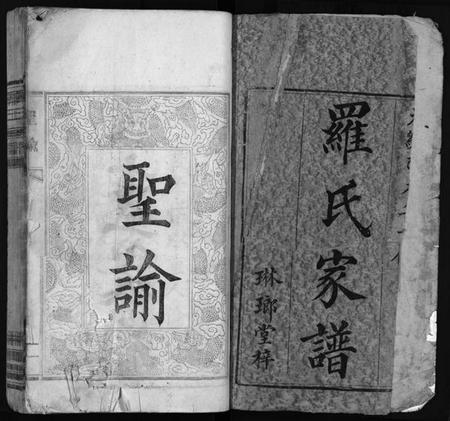 羅氏家譜
琳瑯堂梓
聖諭